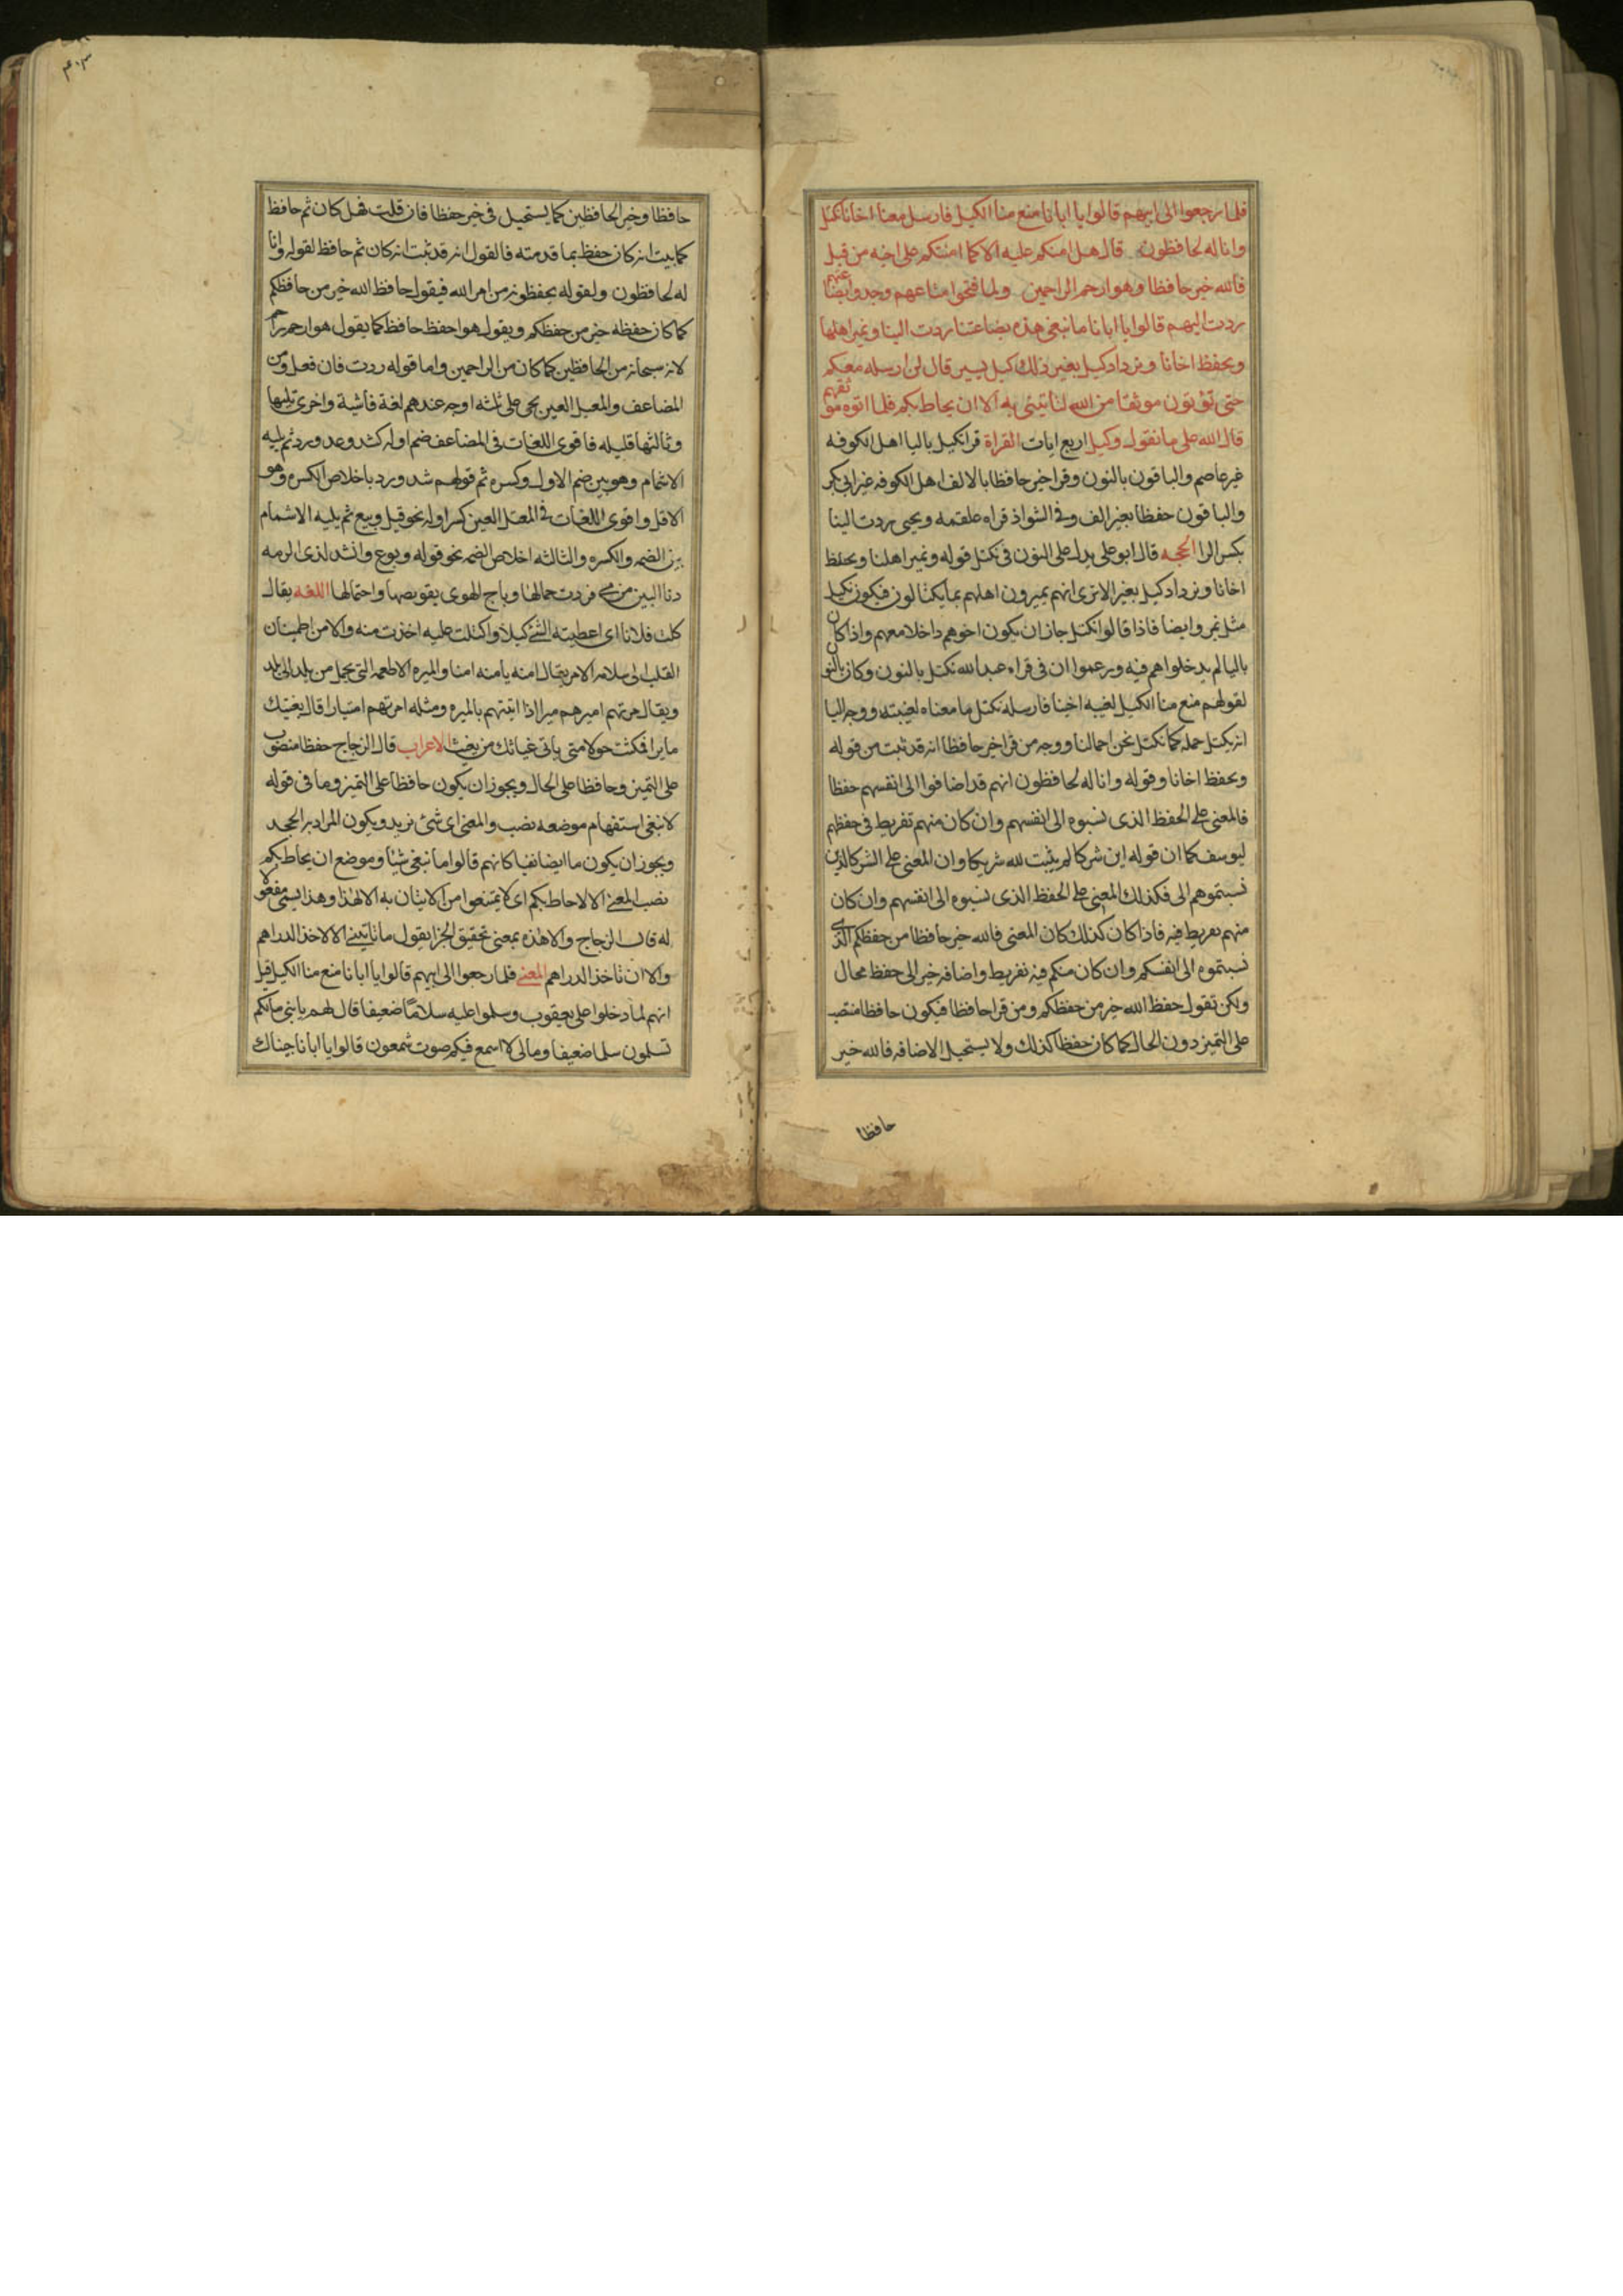 فلما رجعوا الى ابيهم قالوا يا ابانا منع منا الكيل فارسل معنا اخانا نكتل
وانا له لحافظون قال هل امنكم عليه الا كما امنتكم على اخيه من قبل
فالله خير حافظا وهو ارحم الراحمين ولما فتحوا متاعهم وجدوا بضاعتهم
ردت اليهم قالوا يا ابانا ما نبغى هذه بضاعتنا ردت الينا ونمير اهلنا
ونحفظ اخانا ونزداد كيل بعير ذلك كيل يسير قال لن ارسله معكم
حتى تؤتون موثقا من الله لتاتيننى به الا ان يحاط بكم فلما اتوه موثقهم
قال الله على ما نقول وكيل اربع ايات القراة قرا نكيل باليا اهل الكوفه
غير عاصم والباقون بالنون وقرا خير حافظا بالالف اهل الكوفه غير ابى بكر
والباقون حفظا بغير الف وفى الشواذ قراه علقمه ويحيى ردت الينا
بكسر الرا الحجه قال ابو على يدل على النون فى نكتل قوله ونمير اهلنا ونحفظ
اخانا ونزداد كيل بعير الا ترى انهم يميرون اهلهم بما يكتالون فيكون نكيل
مثل نمير وايضا فاذا قالوا نكتل جاز ان يكون اخوهم داخلا معهم واذا كان
باليا لم يدخلوا هم فيه وزعموا ان فى قراه عبد الله نكتل بالنون وكان بالنون
لقولهم منع منا الكيل لغيبه اخينا فارسله نكتل ما معناه لغيبته ووجه اليا
انه يكتل حمله كما نكتل نحن احمالنا ووجه من قرا خير حافظا انه قد ثبت من قوله
ونحفظ اخانا وقوله وانا له لحافظون انهم قد اضافوا الى انفسهم حفظا
فالمعنى على الحفظ الذى نسبوه الى انفسهم وان كان منهم تفريط فى حفظهم
ليوسف كما ان قوله اين شركا لم يثبت لله شريكا وان المعنى على الشركا الذين
نسبتموهم الى فكذلك المعنى على الحفظ الذى نسبوه الى انفسهم وان كان
منهم تفريط فيه فاذا كان كذلك كان المعنى فالله خير حافظا من حفظكم الذى
نسبتموه الى انفسكم وان كان منكم فيه تفريط واضافه خير الى حفظ محال
ولكن تقول حفظ الله خير من حفظكم ومن قرا حافظا فيكون حافظا منتصب
على التميز دون الحال كما كان حفظا كذلك ولا يستحيل الاضافه فالله خير
حافظا
٤٠٣
حافظا وخير الحافظين كما يستحيل فى خير حفظا فان قلت فهل كان ثم حافظ
كما يبت انه كان حفظ بما قدمته فالقول انه قد ثبت انه كان ثم حافظ لقوله وانا
له لحافظون ولقوله يحفظونه من امر الله فيقول حافظ الله خير من حافظكم
كما كان حفظه خير من حفظكم ويقول هو احفظ حافظ كما يقول هو ارحم راحم
لانه سبحانه من الحافظين كما كان من الراحمين واما قوله ردت فان فعل من
المضاعف والمعتل العين يجى على ثلثه اوجه عندهم لغة فاشية واخرى تليها
وثالثها قليله فاقوى اللغات فى المضاعف ضم اوله كشد وعد ورد ثم يليه
الاشمام وهو بين ضم الاول وكسره ثم قولهم شد ورد باخلاص الكسره وهو
الاقل واقوى اللغات فى المعتل العين كسر اوله نحو قيل وبيع ثم يليه الاشمام
بين الضمه والكسره والثالثه اخلاص الضمه نحو قوله وبوع وانشد لذى الرمه
دنا البين من مى فردت جمالها وهاج الهوى تقويضها واحتمالها اللغه يقال
كلت فلانا اى اعطيته الشئ كيلا واكتلت عليه اخذت منه والامن اطمينان
القلب الى سلامه الامر يقال امنه يامنه امنا والميره الاطعمه التى تحمل من بلد الى بلد
ويقال مرتهم اميرهم ميرا اذا اتيتهم بالميره ومثله امرتهم امتيارا قال بعثتك
مايرا فمكثت حولا متى ياتى غياثك من يغيث الاعراب قال الزجاج حفظا منصوب
على التميز وحافظا على الحال ويجوز ان يكون حافظا على التميز وما فى قوله
لا نبغى استفهام موضعه نصب والمعنى اى شئ نريد ويكون المراد به الجحد
ويجوز ان يكون ما ايضا نفيا كانهم قالوا ما نبغى شيئا وموضع ان يحاط بكم
نصب المعنى الا لاحاطه بكم اى لا تمتنعوا من الاتيان به الا لهذا وهذا ايسمى مفعولا
له قال الزجاج والا هذه بمعنى تحقيق الجزا يقول ما تاتينى الا لاخذ الدراهم
والا ان تاخذ الدراهم المعنى فلما رجعوا الى ابيهم قالوا يا ابانا منع منا الكيل قيل
انهم لما دخلوا على يعقوب وسلموا عليه سلاما ضعيفا قال لهم يا بنى ما لكم
تسلمون سلما ضعيفا ومالى لا اسمع فيكم صوت شمعون قالوا يا ابانا جئناك